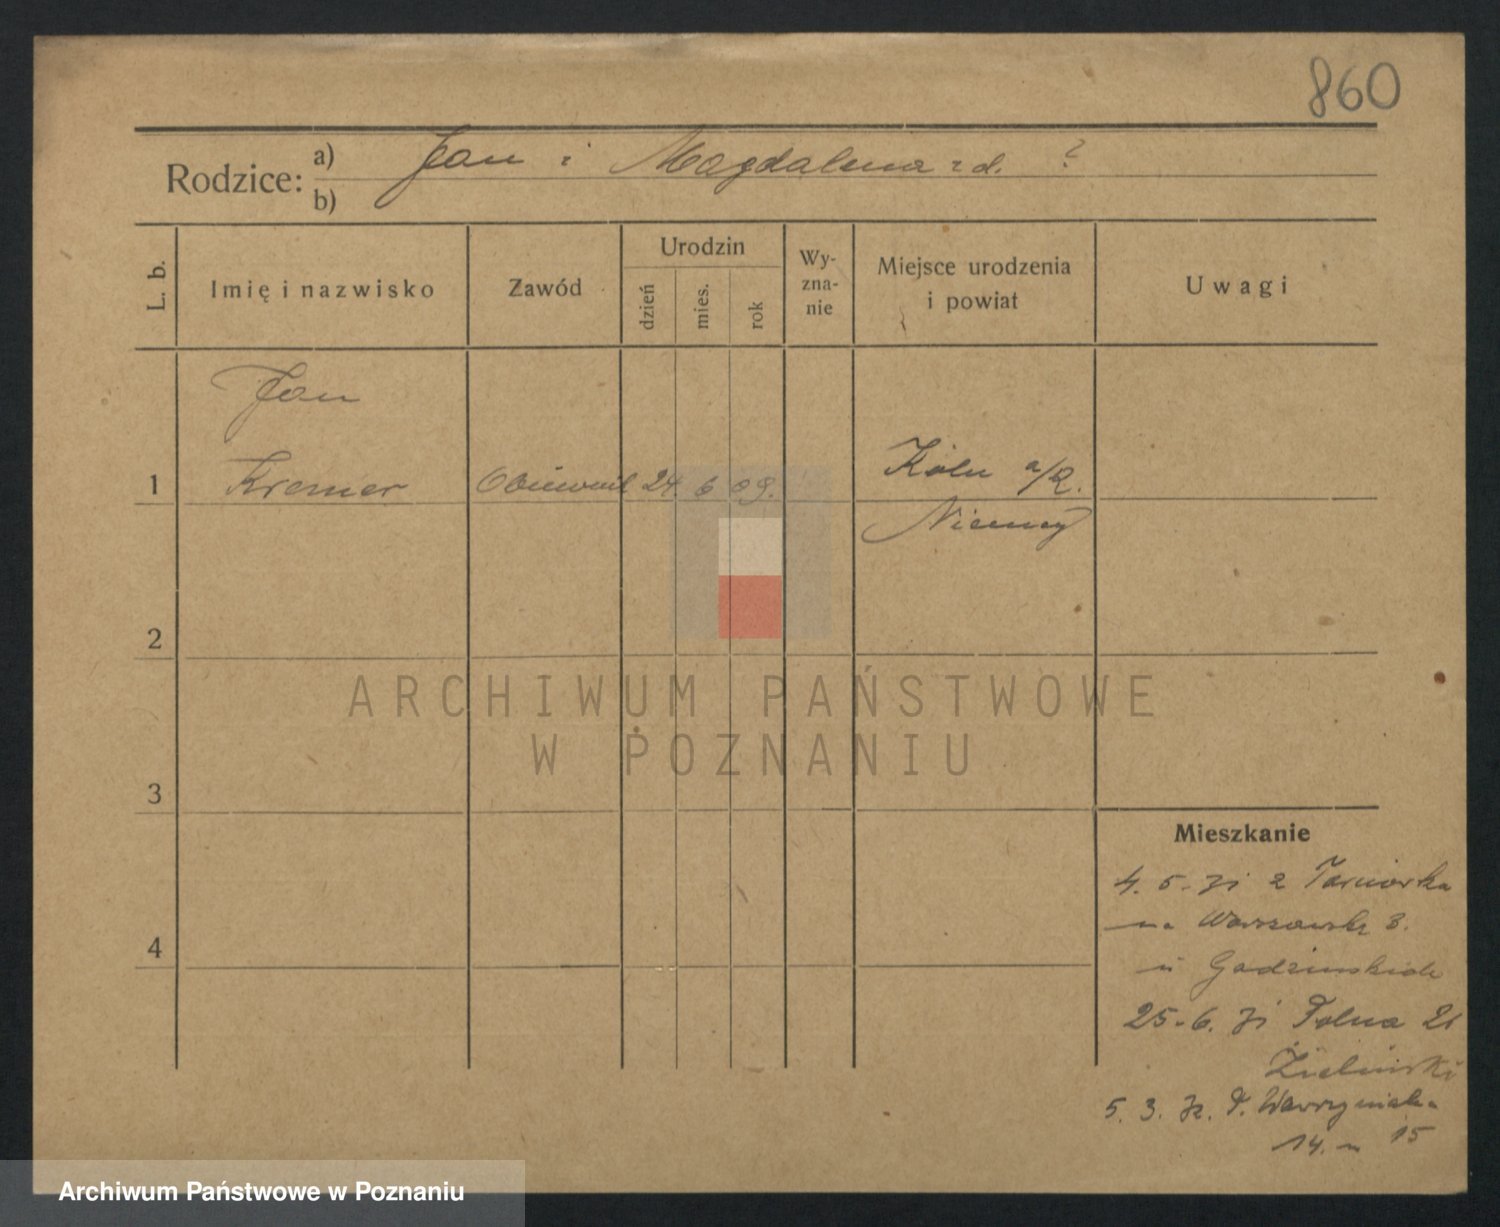 860
Rodzice: a) Jan i Magdalena z d. ?
b)
L. b.
Imię i nazwisko
Zawód
Urodzin
dzień
mies.
rok
Wy-
zna-
nie
Miejsce urodzenia
i powiat
Uwagi
Jan
1 Kremer 24 6 09. Köln a/R.
Niemcy
2
3
4
ARCHIWUM PAŃSTWOWE
W POZNANIU
Mieszkanie
4. 5. 31 z Tarnówka
na Warszawsk 3.
u
25. 6. 31 Polna 21
Zieliński
5. 3. 32. P. Wawrzyniaka
14. m 15
Archiwum Państwowe w Poznaniu